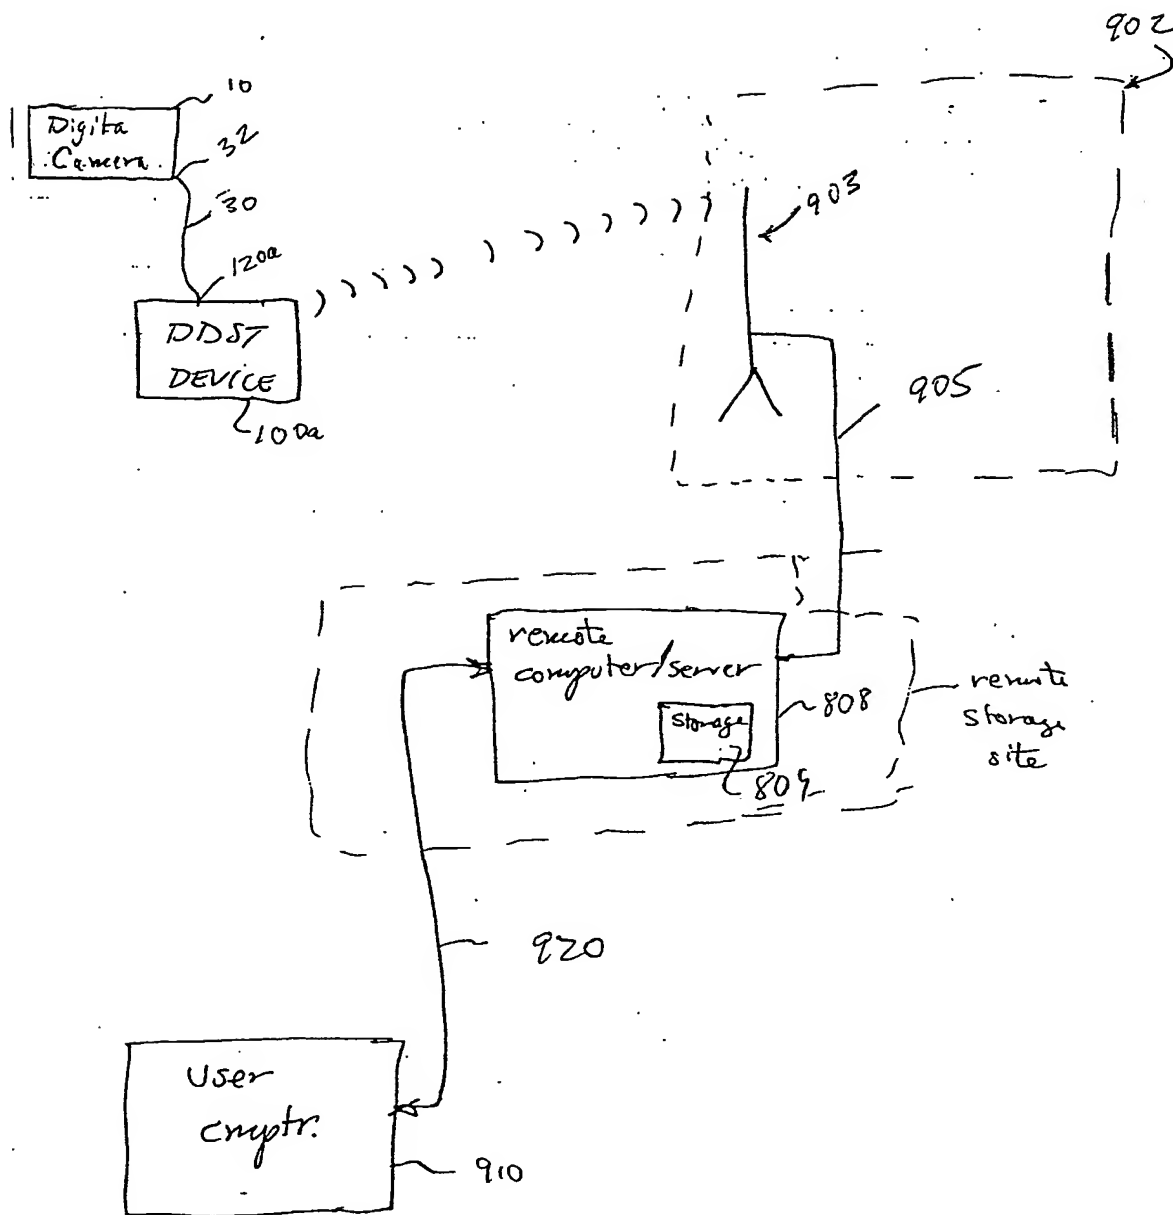 902
10
Digita
Camera
32
30
903
120a
DDST
DEVICE
100a
905
remote
computer/server
Storage
808
809
remote
storage
site
920
User
cmptr.
910